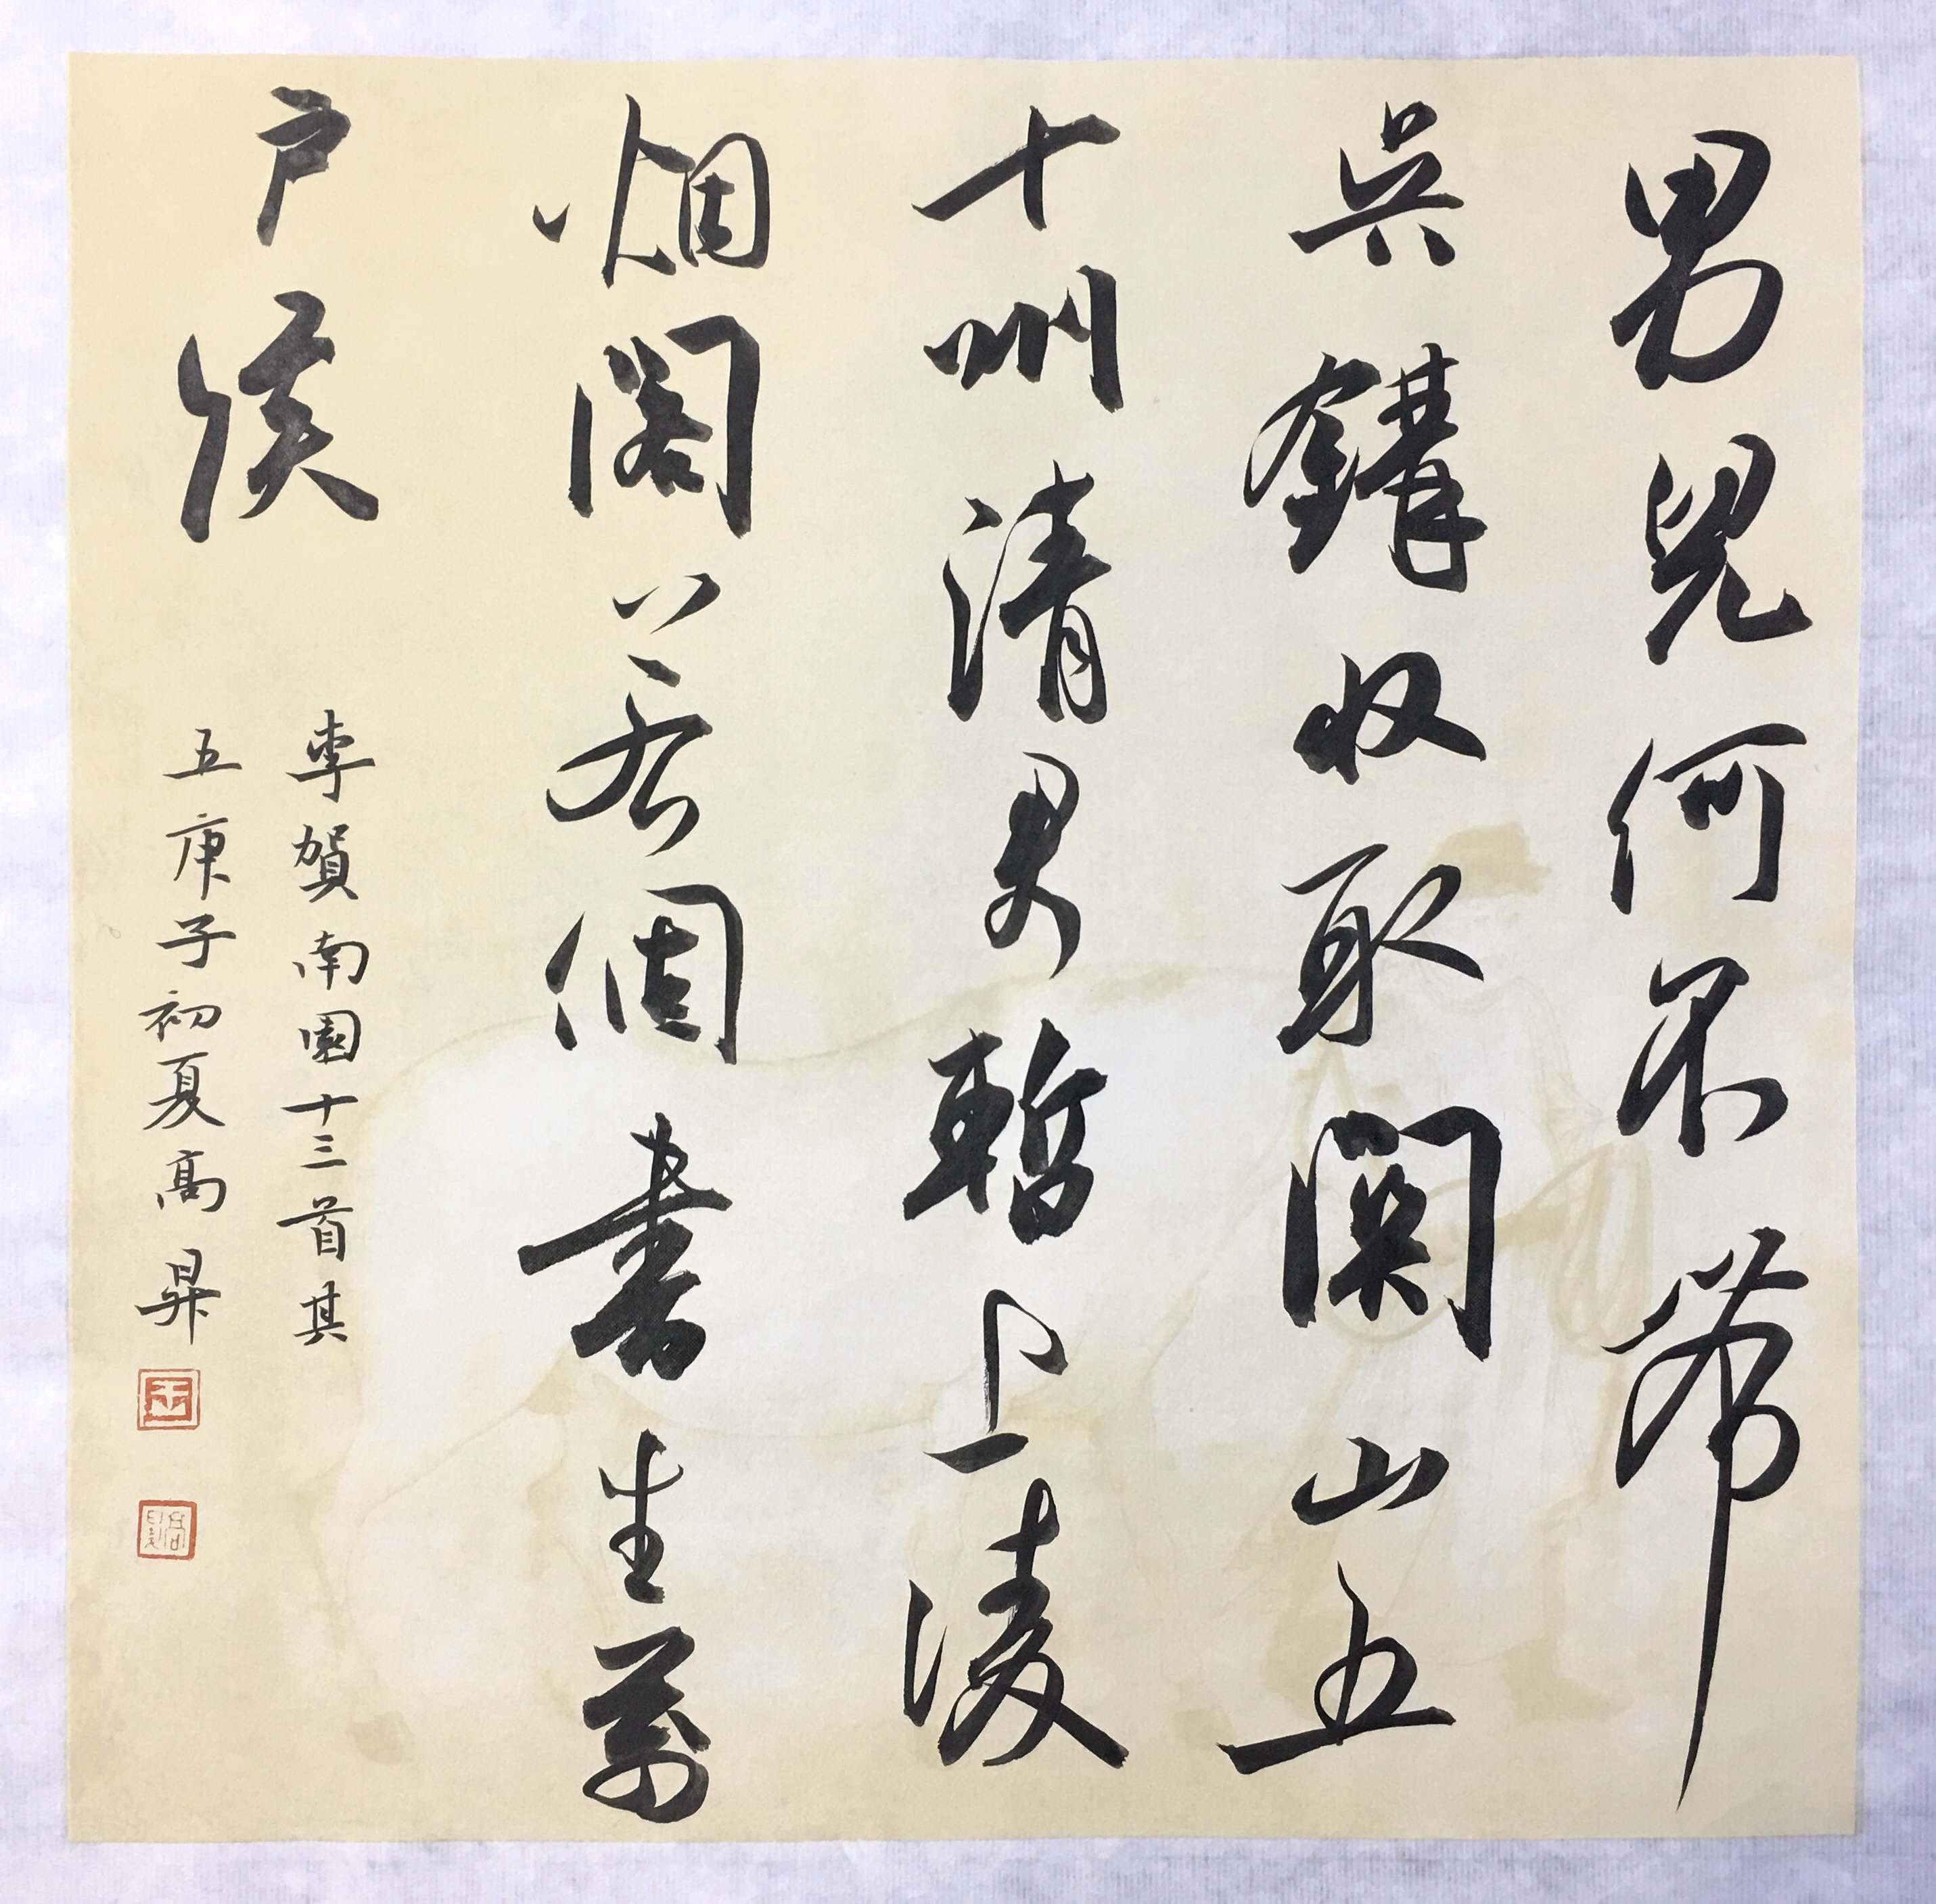 男兒何不帶
吳鉤收取関山五
十州請君暫上凌
烟閣若個書生萬
戶侯
李賀南園十三首其
五庚子初夏高昇
高昇